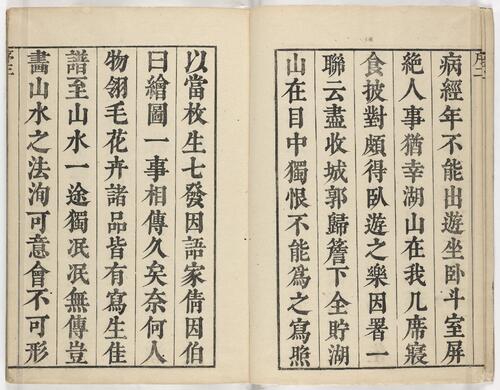 病經年不能出遊坐卧斗室屏
絶人事猶幸湖山在我几席寢
食披對頗得臥遊之樂因署一
聯云盡收城郭歸簷下全貯湖
山在目中獨恨不能爲之寫照
以當枚生七發因語家倩因伯
曰繪圖一事相傳久矣奈何人
物翎毛花卉諸品皆有寫生佳
譜至山水一途獨泯泯無傳豈
畫山水之法洵可意會不可形